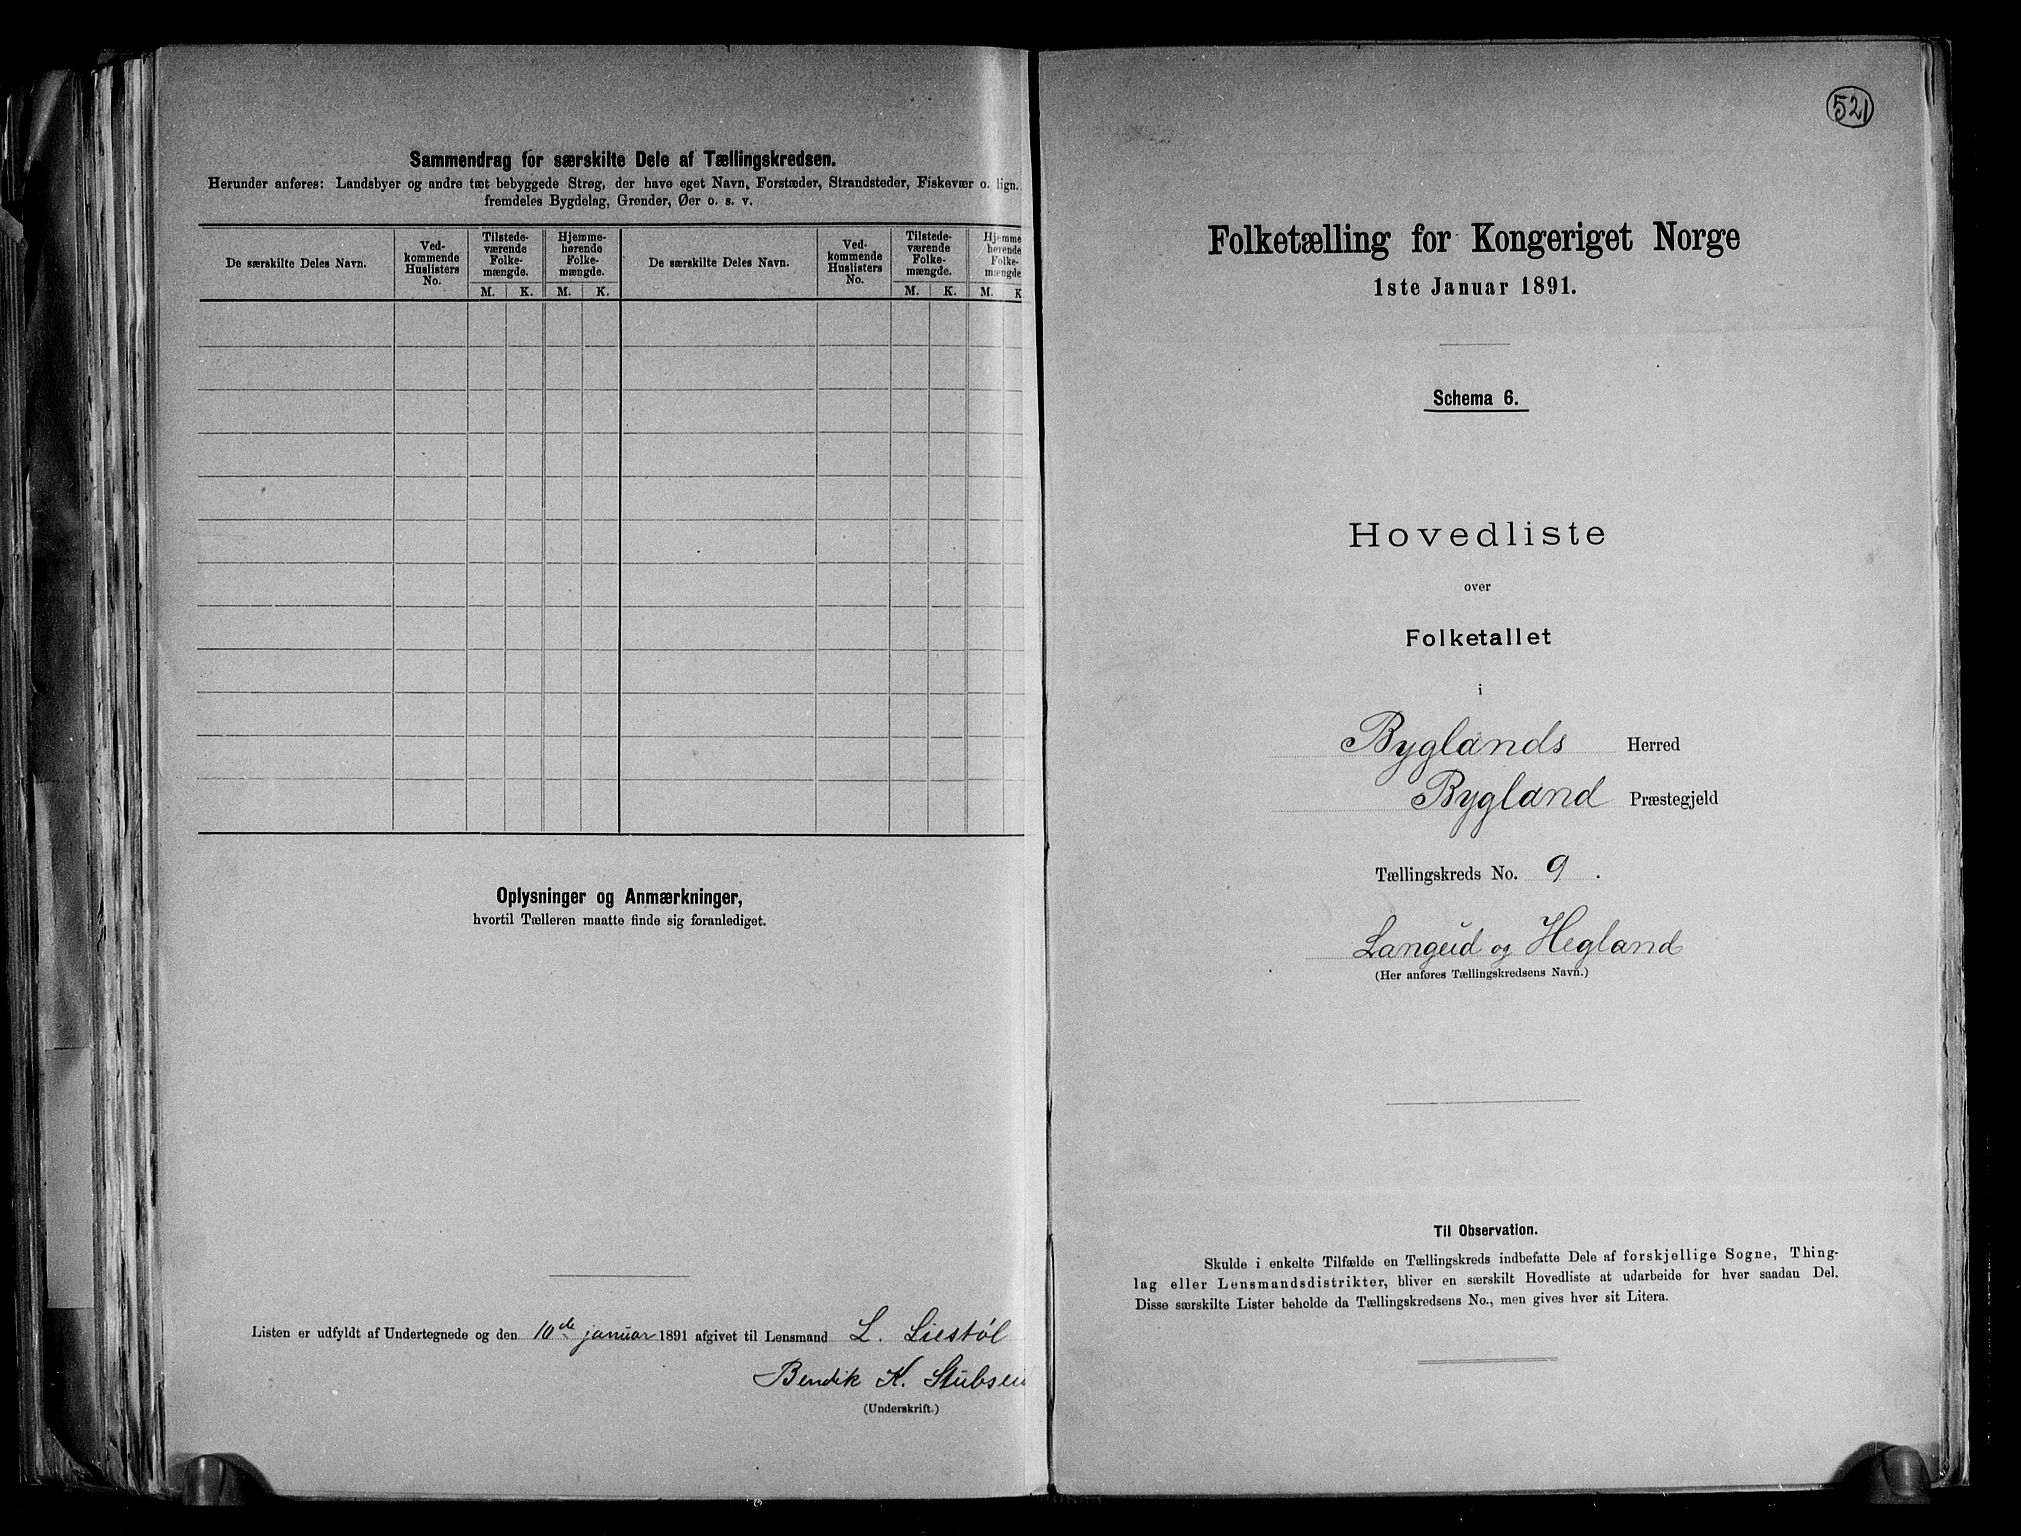 Sammendrag for særskilte Dele af Tællingskredsen.
Herunder anføres: Landsbyer og andre tæt bebyggede Strøg, der have eget Navn, Forstæder, Strandsteder, Fiskevær o. lign.
fremdeles Bygdelag, Grender, Øer o. s. v.
De særskilte Deles Navn.
Ved-
kommende
Huslisters
No.
Tilstede-
værende
Folke-
mængde.
Hjemme-
hørende
Folke-
mængde.
De særskilte Deles Navn.
Ved-
kommende
Huslisters
No.
Tilstede-
værende
Folke-
mængde.
Hjemme
hørende
Folke-
mængde
M. K. M. K. M. K. M. K
Oplysninger og Anmærkninger,
hvortil Tælleren maatte finde sig foranlediget.
Listen er udfyldt af Undertegnede og den 10de januar 1891 afgivet til Lensmand L. Liestøl
Bendik K. Stubsen
(Underskrift.)
521
Folketælling for Kongeriget Norge
1ste Januar 1891.
Schema 6.
Hovedliste
over
Folketallet
i
Byglands Herred
Bygland Præstegjeld
Tællingskreds No. 9.
Langeid og Hegland
(Her anføres Tællingskredsens Navn.)
Til Observation.
Skulde i enkelte Tilfælde en Tællingskreds indbefatte Dele af forskjellige Sogne, Thing-
lag eller Lensmandsdistrikter, bliver en særskilt Hovedliste at udarbeide for hver saadan Del.
Disse særskilte Lister beholde da Tællingskredsens No., men gives hver sit Litera.